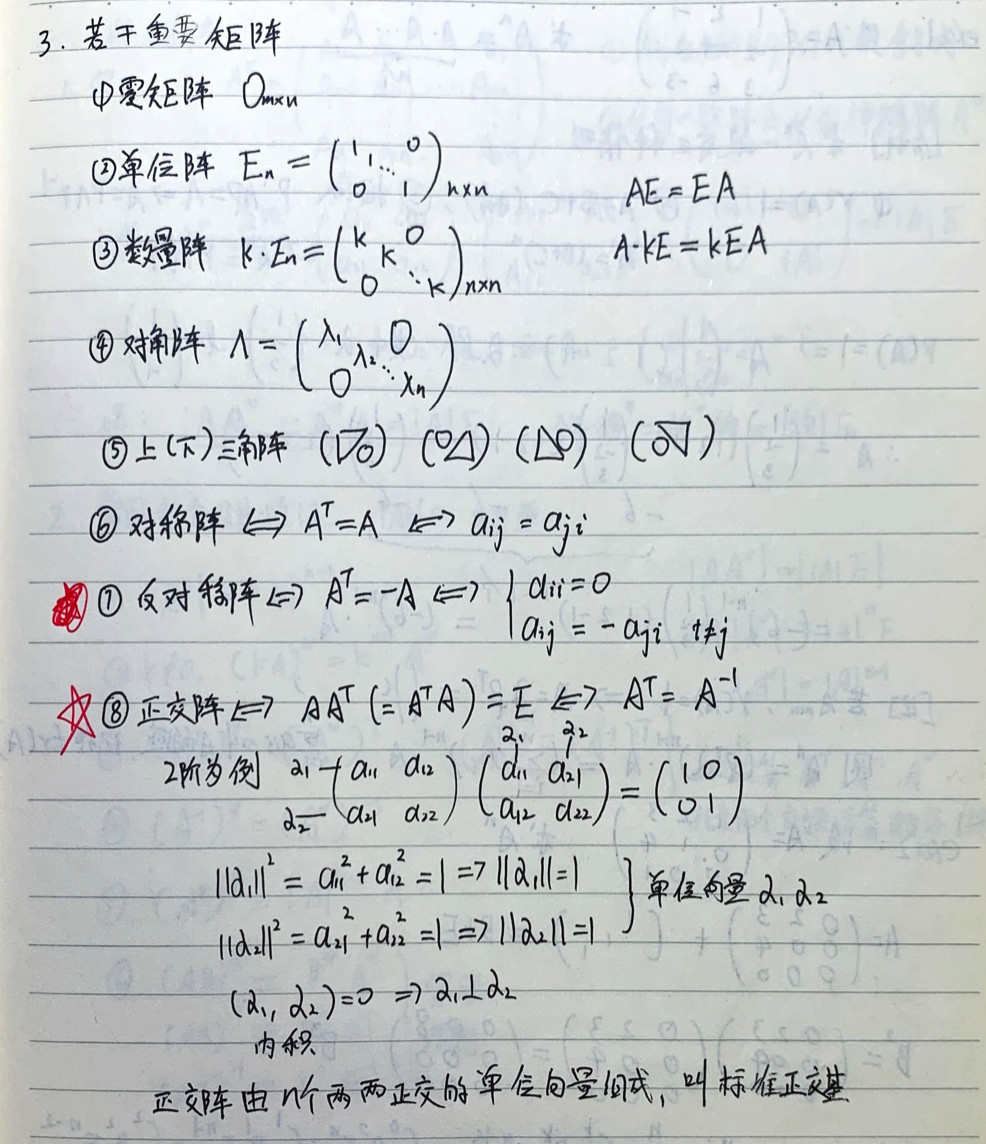 3. 若干重要矩阵
①零矩阵 O_{m×n}
②单位阵 E_n = \begin{pmatrix} 1 & & 0 \\ & 1 \ddots & \\ 0 & & 1 \end{pmatrix}_{n×n} AE = EA
③数量阵 k·E_n = \begin{pmatrix} k & & 0 \\ & k & \\ 0 & \ddots & k \end{pmatrix}_{n×n} A·kE = kEA
④对角阵 Λ = \begin{pmatrix} λ_1 & & 0 \\ & λ_2 \ddots & \\ 0 & & λ_n \end{pmatrix}
⑤上(下)三角阵 (▽0) (0△) (△0) (0▽)
⑥对称阵 ⟺ A^T = A ⟺ a_{ij} = a_{ji}
⑦反对称阵 ⟺ A^T = -A ⟺ { a_{ii} = 0
a_{ij} = -a_{ji} i≠j
⑧正交阵 ⟺ AA^T (= A^T A) = E ⟺ A^T = A^{-1}
α_1 α_2
2阶为例 α_1 — α_2 — \begin{pmatrix} a_{11} & a_{12} \\ a_{21} & a_{22} \end{pmatrix} \begin{pmatrix} a_{11} & a_{21} \\ a_{12} & a_{22} \end{pmatrix} = \begin{pmatrix} 1 & 0 \\ 0 & 1 \end{pmatrix}
||α_1||^2 = a_{11}^2 + a_{12}^2 = 1 ⇒ ||α_1|| = 1
} 单位向量 α_1 α_2
||α_2||^2 = a_{21}^2 + a_{22}^2 = 1 ⇒ ||α_2|| = 1
(α_1, α_2) = 0 ⇒ α_1 ⊥ α_2
内积
正交阵由n个两两正交的单位向量组成, 叫标准正交基